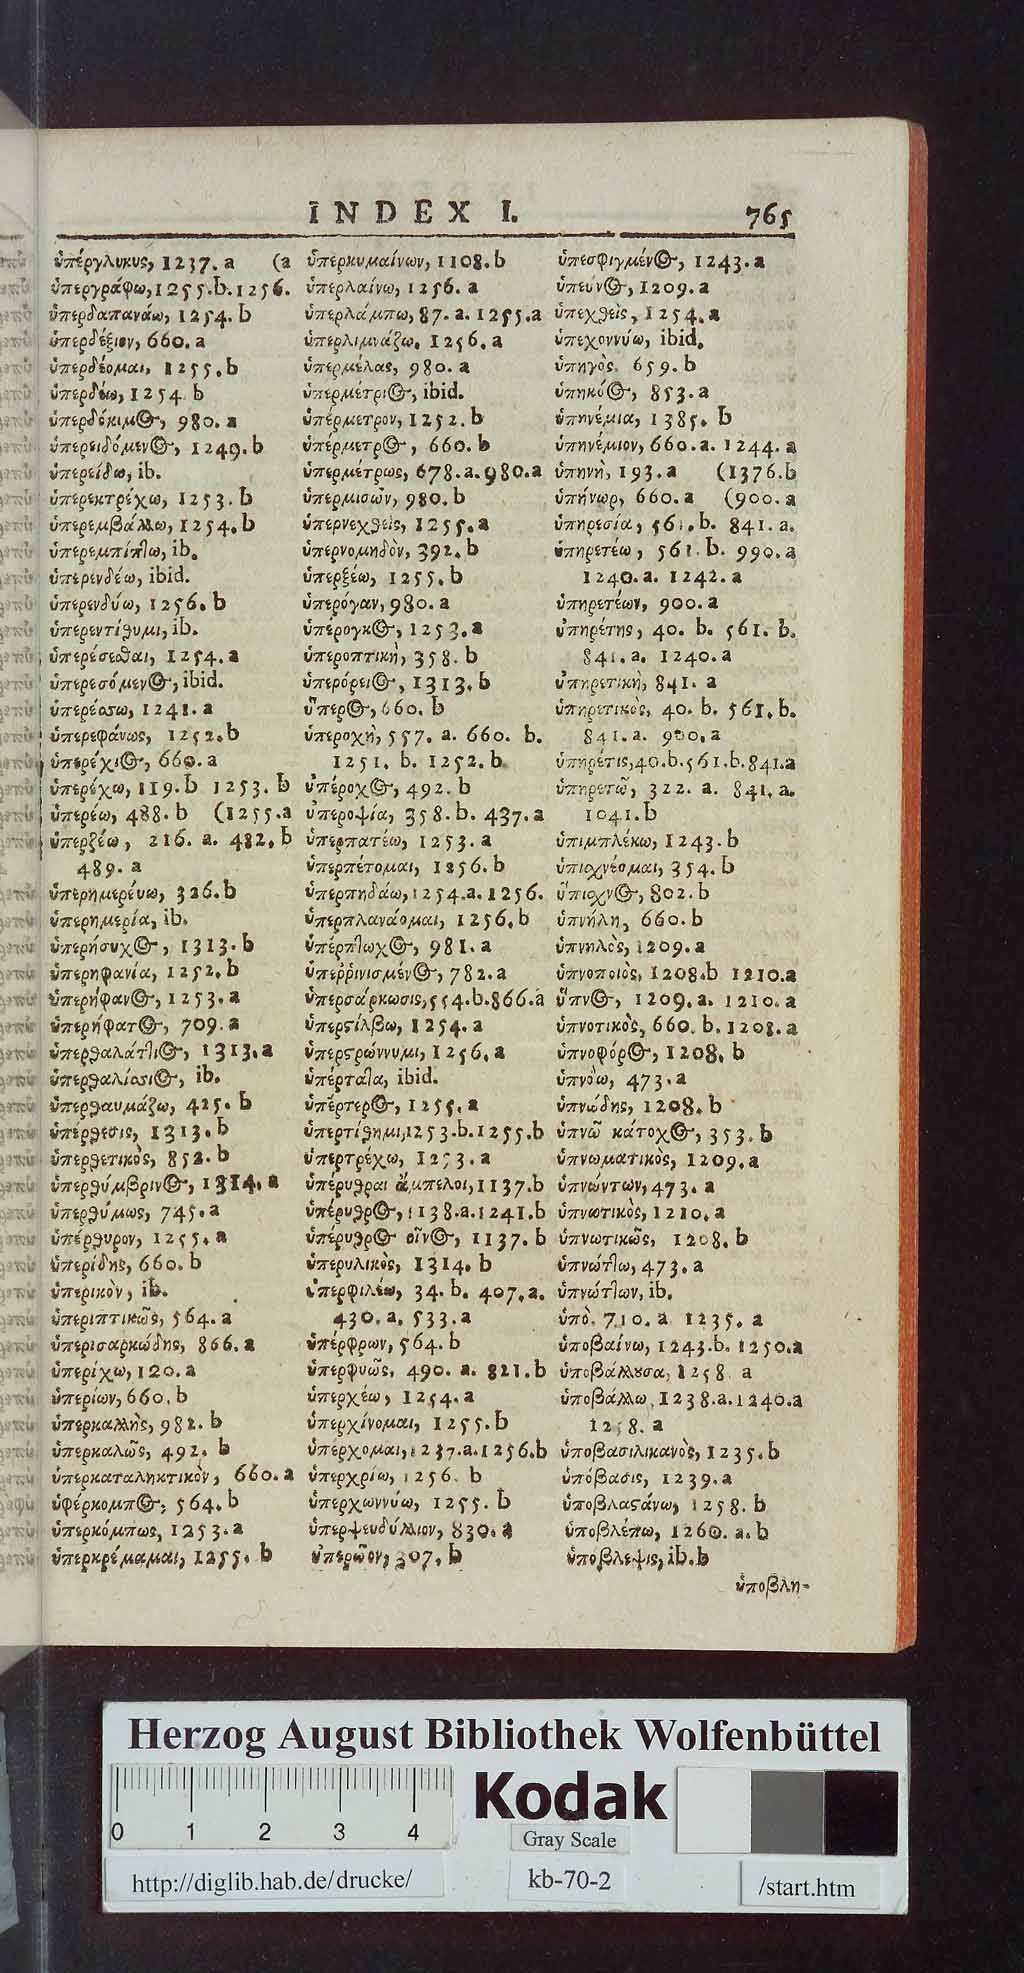 INDEX I. 765
ὑπέργλυκυς, 1237. a (a
ὑπεργράφω, 1255. b. 1256.
ὑπερδαπανάω, 1254. b
ὑπερδέξιον, 660. a
ὑπερδέομαι, 1255. b
ὑπερδέω, 1254. b
ὑπερδόκιμος, 980. a
ὑπερειδόμενος, 1249. b
ὑπερείδω, ib.
ὑπερεκτρέχω, 1253. b
ὑπερεμβάλλω, 1254. b
ὑπερεμπίπτω, ib.
ὑπερενδέω, ibid.
ὑπερενδύω, 1256. b
ὑπερεντίθυμι, ib.
ὑπερέσεσθαι, 1254. a
ὑπερεσόμενος, ibid.
ὑπερέσσω, 1241. a
ὑπερεφάνως, 1252. b
ὑπερέχιος, 660. a
ὑπερέχω, 119. b 1253. b
ὑπερέω, 488. b (1255. a
ὑπερζέω, 216. a. 482. b
489. a
ὑπερημερέυω, 326. b
ὑπερημερία, ib.
ὑπερήσυχος, 1313. b
ὑπερηφανία, 1252. b
ὑπερήφανος, 1253. a
ὑπερήφατος, 709. a
ὑπερθαλάττιος, 1313. a
ὑπερθαλίασιος, ib.
ὑπερθαυμάζω, 425. b
ὑπέρθεσις, 1313. b
ὑπερθετικὸς, 852. b
ὑπερθύμβρινος, 1314. a
ὑπερθύμως, 745. a
ὑπέρθυρον, 1255. a
ὑπερίδης, 660. b
ὑπερικὸν, ib.
ὑπεριπτικῶς, 564. a
ὑπερισαρκώδης, 866. a
ὑπερίχω, 120. a
ὑπερίων, 660. b
ὑπερκαλλὴς, 982. b
ὑπερκαλῶς, 492. b
ὑπερκαταληκτικὸν, 660. a
ὑφέρκομπος, 564. b
ὑπερκόμπως, 1253. a
ὑπερκρέμαμαι, 1255. b
ὑπερκυμαίνων, 1108. b
ὑπερλαίνω, 1256. a
ὑπερλάμπω, 87. a. 1255. a
ὑπερλιμνάζω, 1256. a
ὑπερμέλας, 980. a
ὑπερμέτριος, ibid.
ὑπέρμετρον, 1252. b
ὑπέρμετρος, 660. b
ὑπερμέτρως, 678. a. 980. a
ὑπερμισῶν, 980. b
ὑπερνεχθεὶς, 1255. a
ὑπερνομηδὸν, 392. b
ὑπερξέω, 1255. b
ὑπερόγαν, 980. a
ὑπέρογκος, 1253. a
ὑπεροπτικὴ, 358. b
ὑπερόρειος, 1313. b
ὕπερος, 660. b
ὑπεροχὴ, 557. a. 660. b.
1251. b. 1252. b
ὑπέροχος, 492. b
ὑπεροψία, 358. b. 437. a
ὑπερπατέω, 1253. a
ὑπερπέτομαι, 1256. b
ὑπερπηδάω, 1254. a. 1256.
ὑπερπλανάομαι, 1256. b
ὑπέρπτωχος, 981. a
ὑπεῤῥινισμένος, 782. a
ὑπερσάρκωσις, 554. b. 866. a
ὑπερστίλβω, 1254. a
ὑπερστρώννυμι, 1256. a
ὑπέρτατα, ibid.
ὑπέρτερος, 1255. a
ὑπερτίθημι, 1253. b. 1255. b
ὑπερτρέχω, 1253. a
ὑπέρυθραι ἄμπελοι, 1137. b
ὑπέρυθρος, 1138. a. 1241. b
ὑπέρυθρος οἶνος, 1137. b
ὑπερυλικὸς, 1314. b
ὑπερφιλέω, 34. b. 407. a.
430. a. 533. a
ὑπέρφρων, 564. b
ὑπερφυῶς, 490. a. 821. b
ὑπερχέω, 1254. a
ὑπερχίνομαι, 1255. b
ὑπερχομαι, 1237. a. 1256. b
ὑπερχρίω, 1256. b
ὑπερχωννύω, 1255. b
ὑπερψευδύλλιον, 830. a
ὑπερῶον, 307. b
ὑπεσφιγμένος, 1243. a
ὑπεύνος, 1209. a
ὑπεχθεὶς, 1254. a
ὑπεχοννύω, ibid.
ὑπηγὸς, 659. b
ὑπηκόος, 853. a
ὑπηνέμια, 1385. b
ὑπηνέμιον, 660. a. 1244. a
ὑπηνὴ, 193. a (1376. b
ὑπήνωρ, 660. a (900. a
ὑπηρεσία, 561. b. 841. a.
ὑπηρετέω, 561. b. 990. a
1240. a. 1242. a
ὑπηρετέων, 900. a
ὑπηρέτης, 40. b. 561. b.
841. a. 1240. a
ὑπηρετικὴ, 841. a
ὑπηρετικὸς, 40. b. 561. b.
841. a. 900. a
ὑπηρέτις, 40. b. 561. b. 841. a
ὑπηρετῶ, 322. a. 841. a.
1041. b
ὑπιμπλέκω, 1243. b
ὑπιοχνέομαι, 354. b
ὕπιοχνος, 802. b
ὑπνήλη, 660. b
ὑπνηλὸς, 1209. a
ὑπνοποιὸς, 1208. b 1210. a
ὕπνος, 1209. a. 1210. a
ὑπνοτικὸς, 660. b. 1208. a
ὑπνοφόρος, 1208. b
ὑπνόω, 473. a
ὑπνώδης, 1208. b
ὑπνῶ κάτοχος, 353. b
ὑπνωματικὸς, 1209. a
ὑπνώντων, 473. a
ὑπνωτικὸς, 1210. a
ὑπνωτικῶς, 1208. b
ὑπνώττω, 473. a
ὑπνώττων, ib.
ὑπὸ. 710. a 1235. a
ὑποβαίνω, 1243. b. 1250. a
ὑποβάλλουσα, 1258. a
ὑποβάλλω, 1238. a. 1240. a
1258. a
ὑποβασιλικανὸς, 1235. b
ὑπόβασις, 1239. a
ὑποβλαστάνω, 1258. b
ὑποβλέπω, 1260. a. b
ὑποβλεψις, ib. b
ὑποβλη-
Herzog August Bibliothek Wolfenbüttel
0 1 2 3 4
Kodak
Gray Scale
http://diglib.hab.de/drucke/
kb-70-2
/start.htm